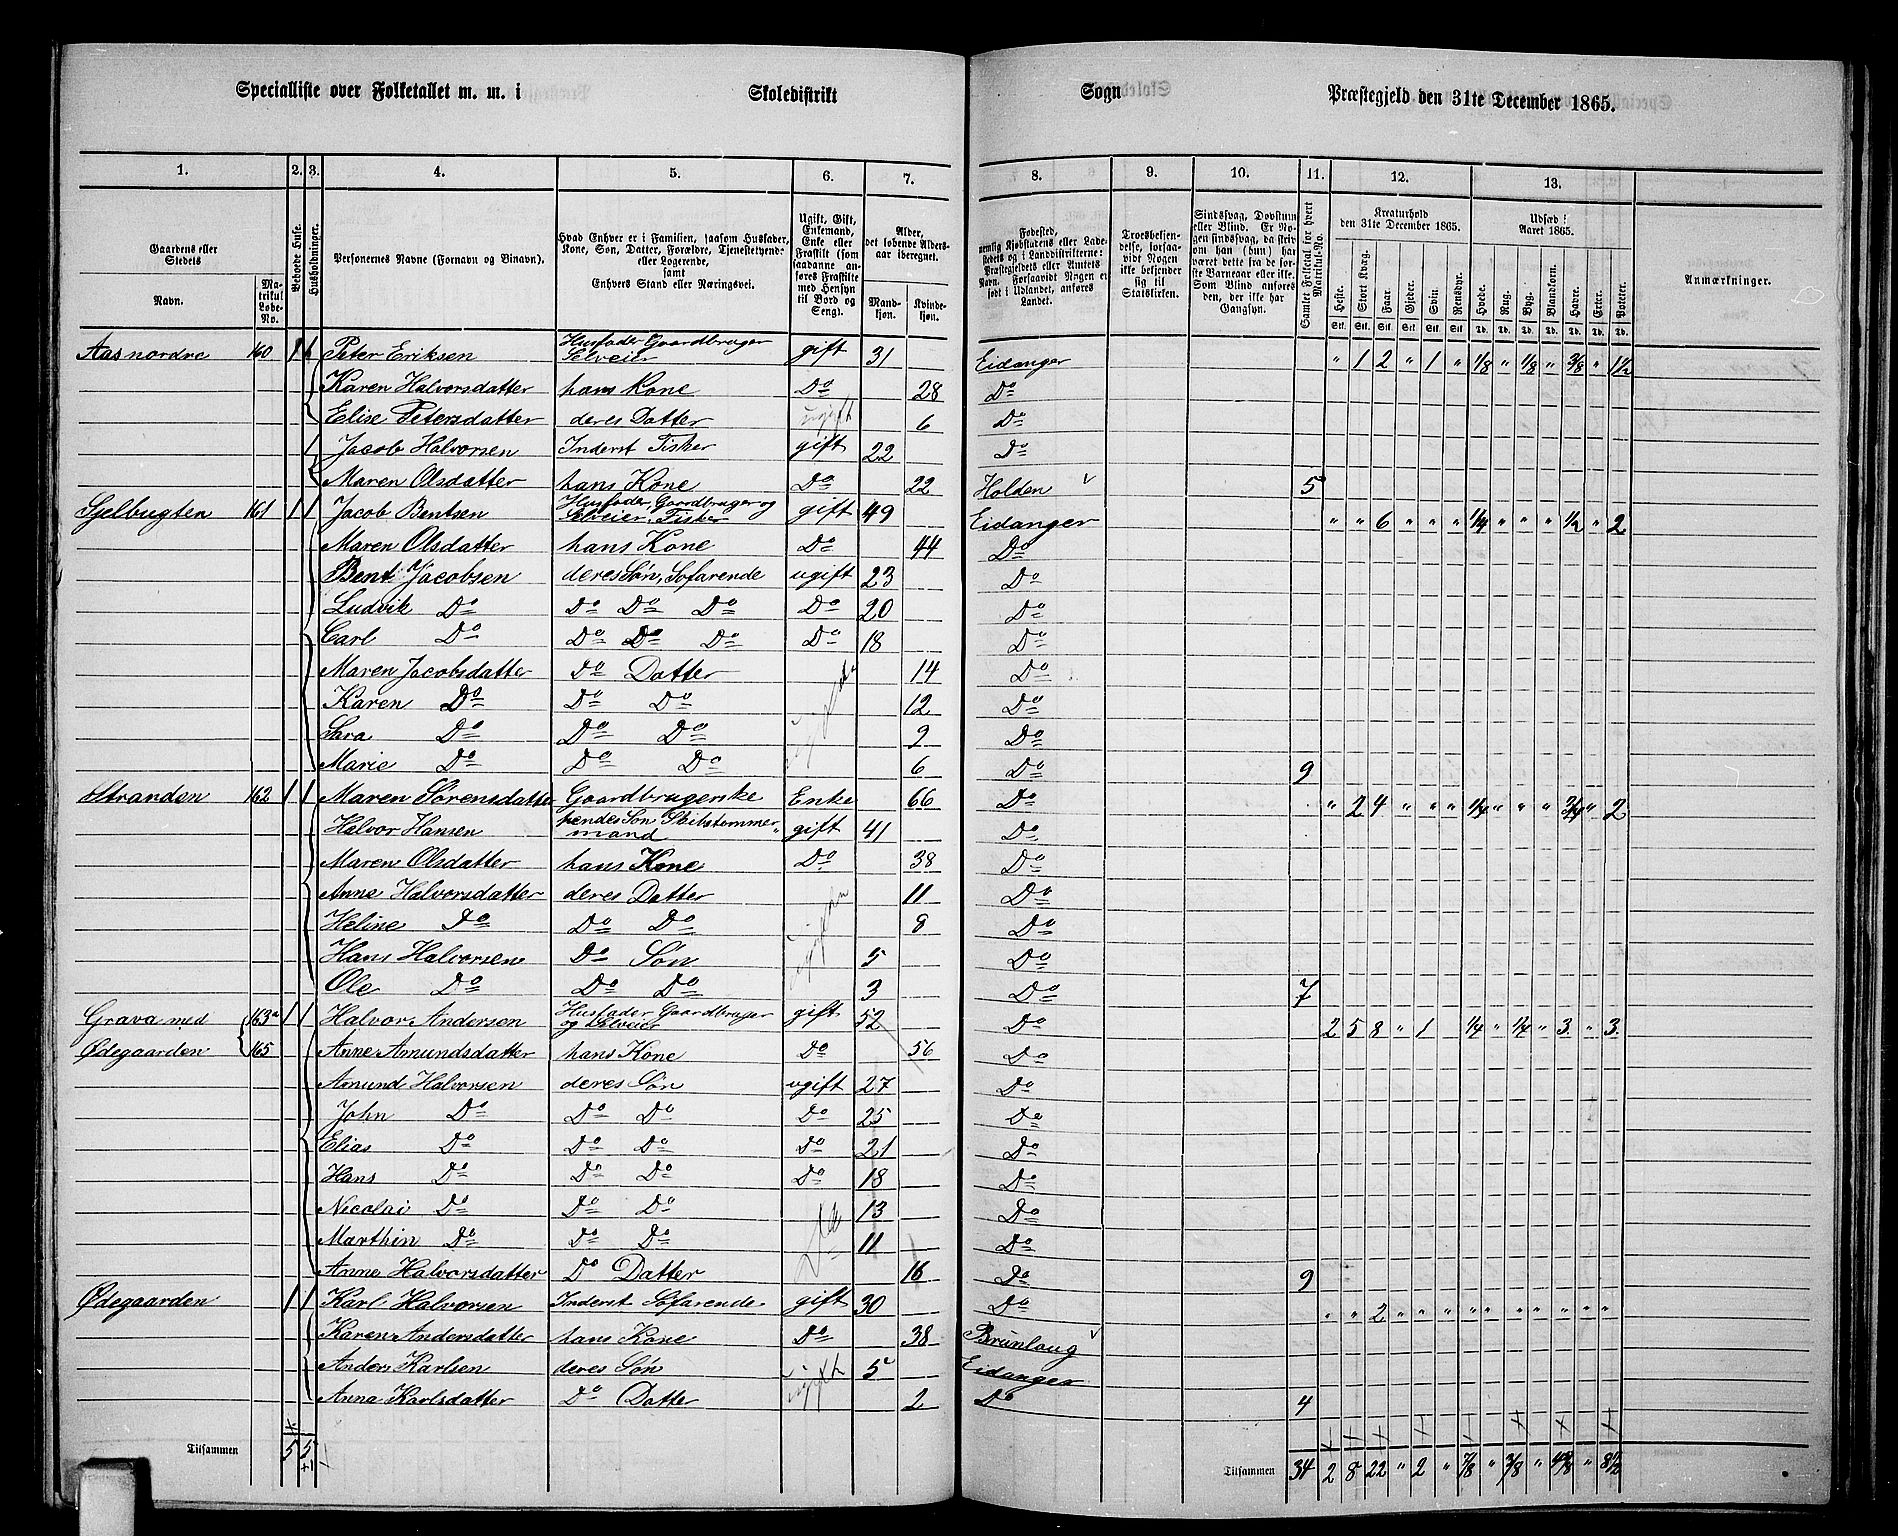 Specialliste over Folketallet m. m. i Skoledistrikt Sogn Præstegjeld den 31te December 1865.
1. 2. 3. 4. 5. 6. 7. 8. 9. 10. 11. 12. 13.
Gaardens eller Stedets Navn. Matrikul Løbe-No.
Beboede Huse.
Husholdninger.
Personernes Navne (Fornavn og Binavn).
Hvad Enhver er i Familien, saasom Husfader, Kone, Søn, Datter, Forældre, Tjenestetyende eller Logerende, samt Enhvers Stand eller Næringsvei.
Ugift, Gift, Enkemand, Enke eller Fraskilt (som saadanne anføres Fraskilte med Hensyn til Bord og Seng).
Alder, det løbende Aldersaar iberegnet.
Mandkjøn. Kvindekjøn.
Fødested, nemlig Kjøbstadens eller Ladestedets og i Landdistrikterne: Præstegjeldets eller Amtets Navn. Forsaavidt Nogen er født i Udlandet, anføres Landet.
Troesbekjendelse, forsaavidt Nogen ikke bekjender sig til Statskirken.
Sindssvag, Døvstum eller Blind. Er Nogen sindssvag, da skrives om han (hun) har været dette fra de første Barneaar eller ikke. Som Blind anføres den, der ikke har Gangsyn.
Samlet Folketal for hvert Matrikul-No.
Kreaturhold den 31te December 1865.
Heste. Stort Kvæg. Faar. Gjeder. Svin. Rensdyr.
Udsæd i Aaret 1865.
Hvede. Rug. Byg. Blandkorn. Havre. Erter. Poteter.
Stk. Stk. Stk. Stk. Stk. Stk. Td. Td. Td. Td. Td. Td. Td.
Anmærkninger.
Aas nordre 160 1 1 Peter Eriksen Husfader Gaardbruger Selveier gift 31 Eidanger " 1 2 " 1 " 1/8 " 1/8 " 3/8 " 1 1/2
Karen Halvorsdatter hans Kone Do 28 Do
Elise Petersdatter deres Datter ugift 6 Do
Jacob Halvorsen Inderst Fisker gift 22 Do
Maren Olsdatter hans Kone Do 22 Holden 5
Sjelbugten 161 1 1 Jacob Bentsen Husfader, Gaardbruger og Selveier, Fisker gift 49 Eidanger " " 6 " " " 1/4 " " " 1/2 " 2
Maren Olsdatter hans Kone Do 44 Do
Bent Jacobsen deres Søn, Søfarende ugift 23 Do
Ludvik Do Do Do Do Do 20 Do
Carl Do Do Do Do Do 18 Do
Maren Jacobsdatter Do Datter 14 Do
Karen Do Do Do 12 Do
Sara Do Do Do 9 Do
Marie Do Do Do 6 Do 9
Stranden 162 1 1 Maren Sørensdatter Gaardbrugerske Enke 66 Do " 2 4 " " " 1/4 " " " 3/4 " 2
Halvor Hansen hendes Søn Skibstømmermand gift 41 Do
Maren Olsdatter hans Kone Do 38 Do
Anne Halvorsdatter deres Datter 11 Do
Heline Do Do Do 8 Do
Hans Halvorsen Do Søn 5 Do
Ole Do Do Do 3 Do 7
Grava med 163a 1 1 Halvor Andersen Husfader Gaardbruger og Selveier gift 52 Do 2 5 8 " 1 1/4 " 1/4 " 3 " 3
Ødegaarden 165 Anne Amundsdatter hans Kone Do 56 Do
Amund Halvorsen deres Søn ugift 27 Do
John Do Do Do Do 25 Do
Elias Do Do Do Do 21 Do
Hans Do Do Do Do 18 Do
Nicolai Do Do Do 13 Do
Marthin Do Do Do 11 Do
Anne Halvorsdatter Do Datter 16 Do 9
Ødegaarden 1 1 Karl Halvorsen Inderst Søfarende gift 30 Do " " 2 " " " " " " " " " "
Karen Andersdatter hans Kone Do 38 Brunlaug
Anders Karlsen deres Søn ugift 5 Eidanger
Anna Karlsdatter Do Datter 2 Do 4
Tilsammen 5 5 Tilsammen 34 2 8 22 " 2 " 7/8 " 3/8 " 4 5/8 " 8 1/2